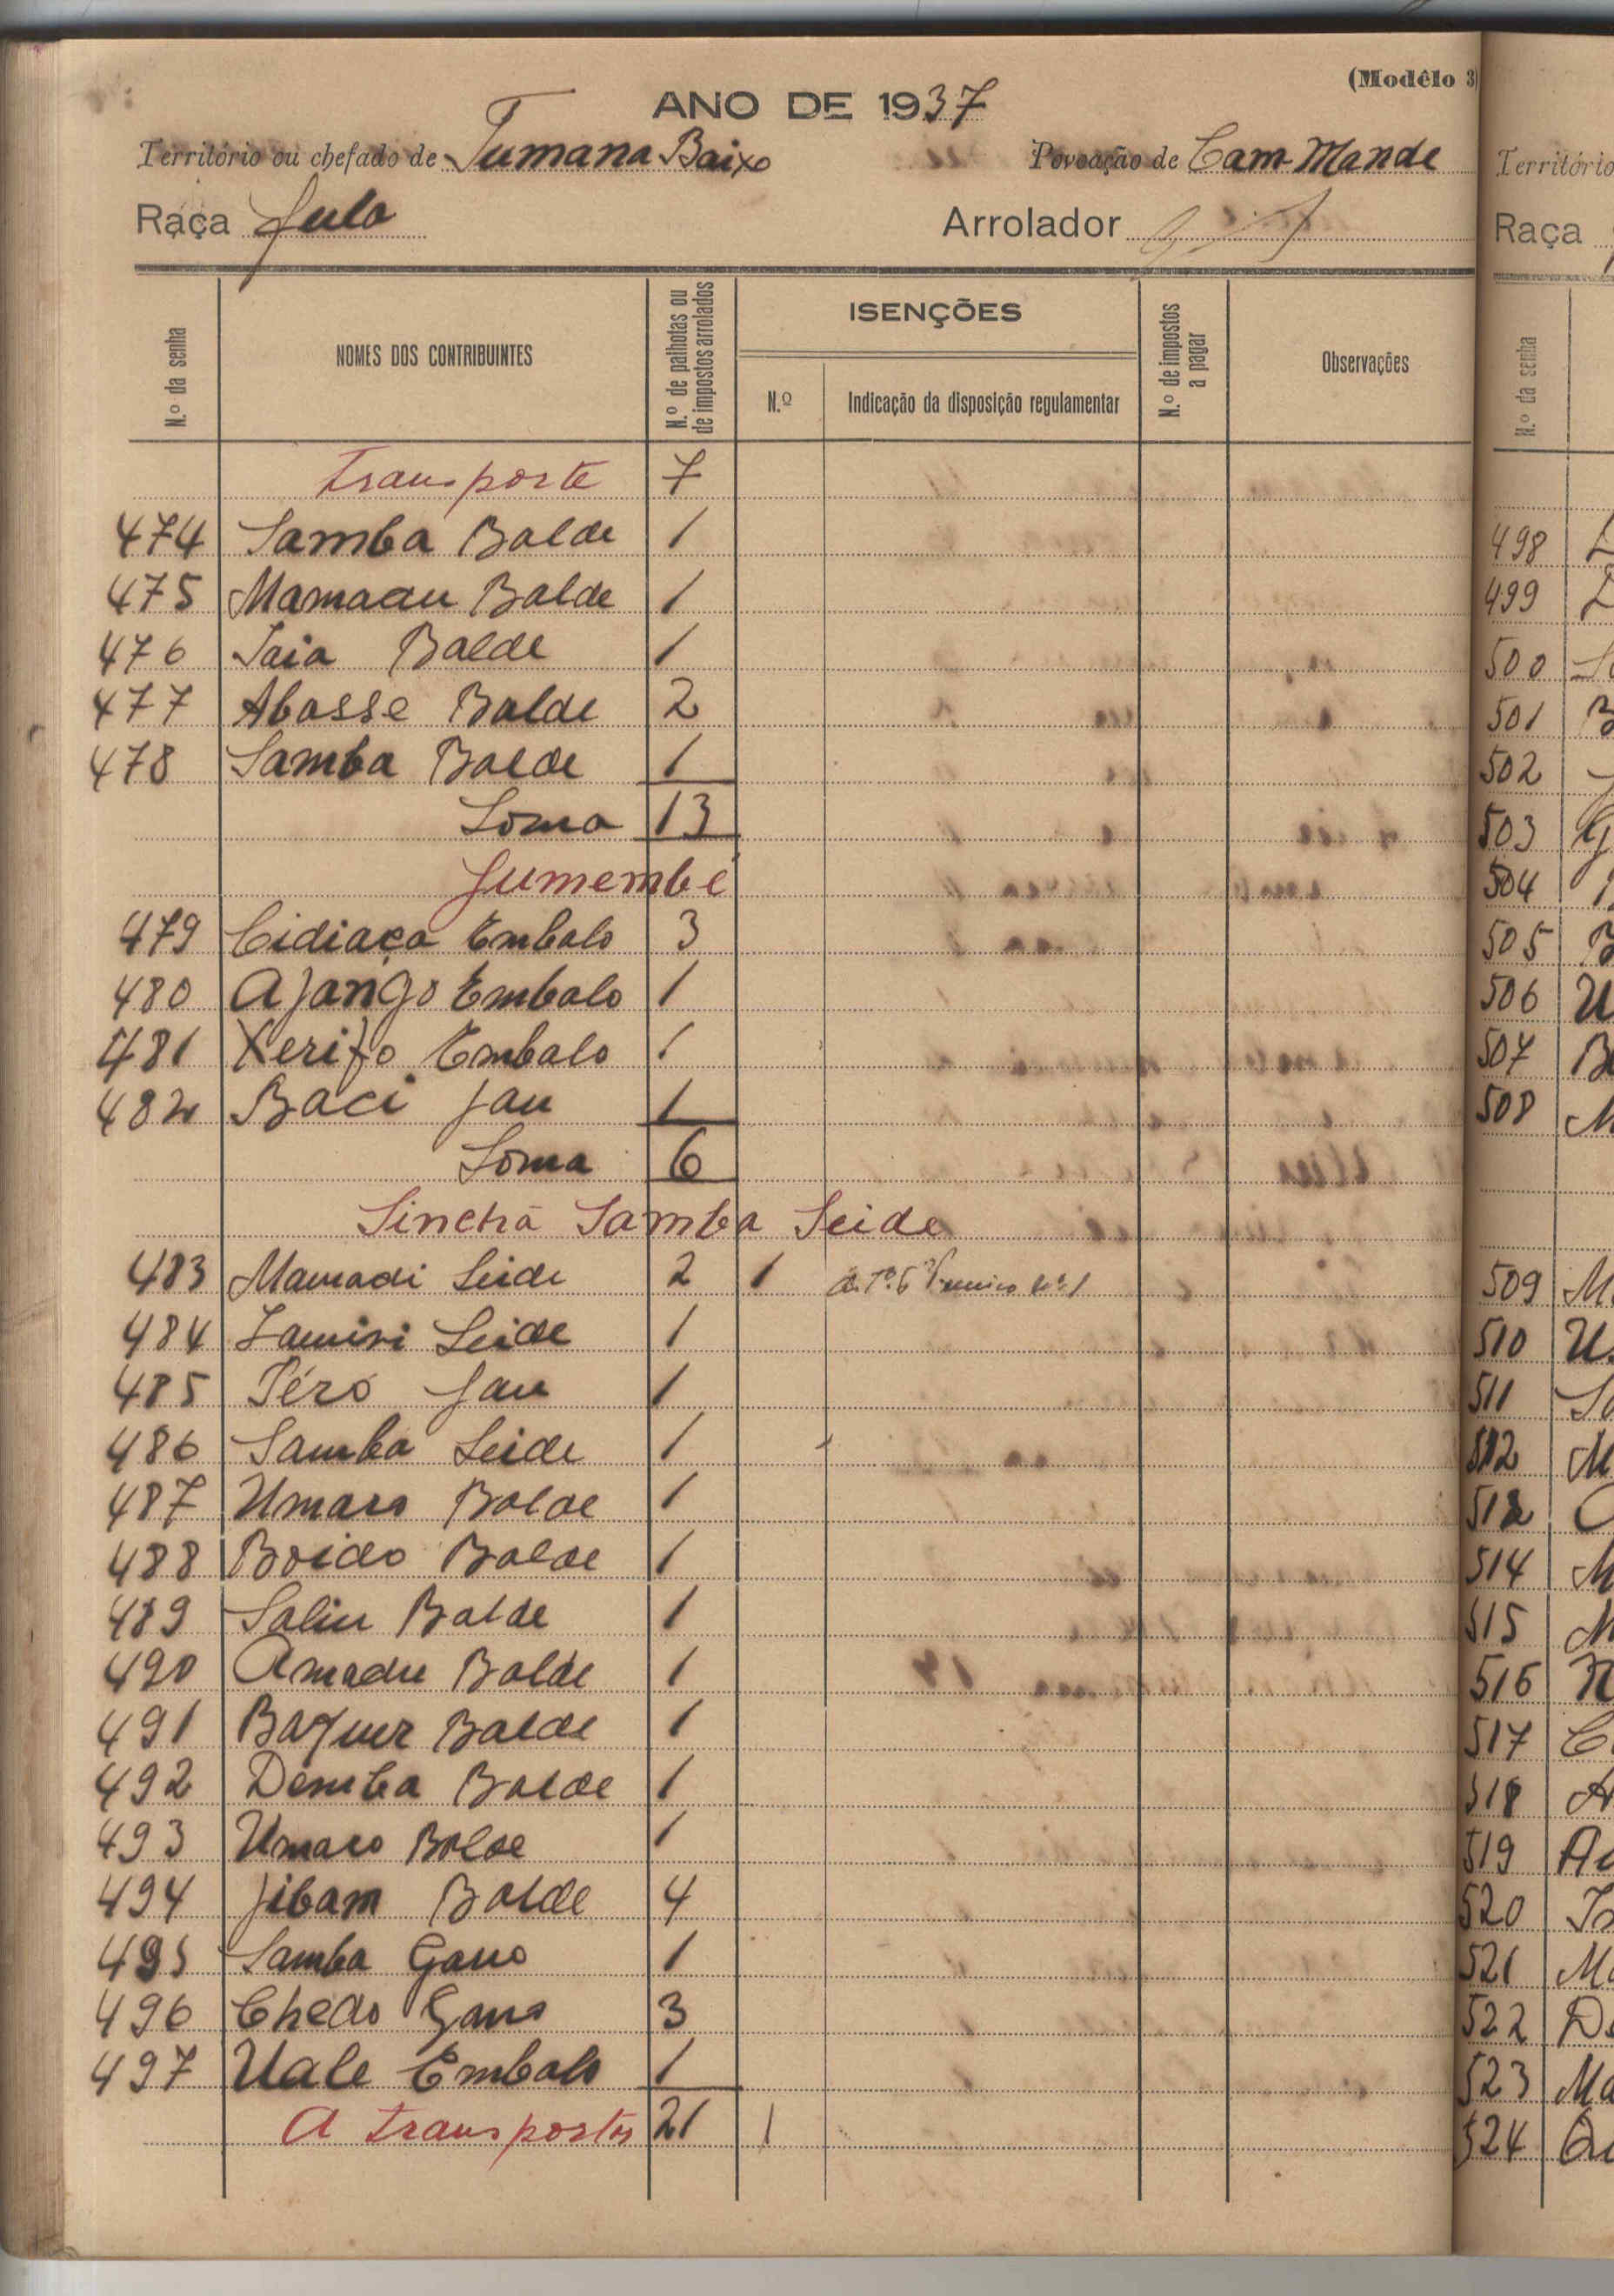 (Modêlo 3)
ANO DE 1937
Território ou chefado de Tumana Baixo Povoação de Cam Mande
Raça Fula Arrolador
N.º da senha NOMES DOS CONTRIBUINTES N.º de palhotas ou de impostos arrolados ISENÇÕES N.º Indicação da disposição regulamentar N.º de impostos a pagar Observações
Transporte 7
474 Samba Balde 1
475 Mamadu Balde 1
476 Iaia Balde 1
477 Abasse Balde 2
478 Samba Balde 1
Soma 13
Jumembé
479 Cidiaca Embalo 3
480 Ajango Embalo 1
481 Xerifo Embalo 1
482 Baci Jau 1
Soma 6
Sinchã Samba Seide
483 Mamadi Seide 2 1
484 Seide 1
485 Jau 1
486 Samba Seide 1
487 Umaro Balde 1
488 Boido Balde 1
489 Saliu Balde 1
490 Amadu Balde 1
491 Balde 1
492 Demba Balde 1
493 Umaro Balde 1
494 Jibam Balde 4
495 Samba Gano 1
496 Chedo Gano 3
497 Uale Embalo 1
A transportar 21 1
Território
Raça
N.º da senha
498
499
500
501
502
503
504
505
506
507
508
509
510
511
512
513
514
515
516
517
518
519
520
521
522
523
524